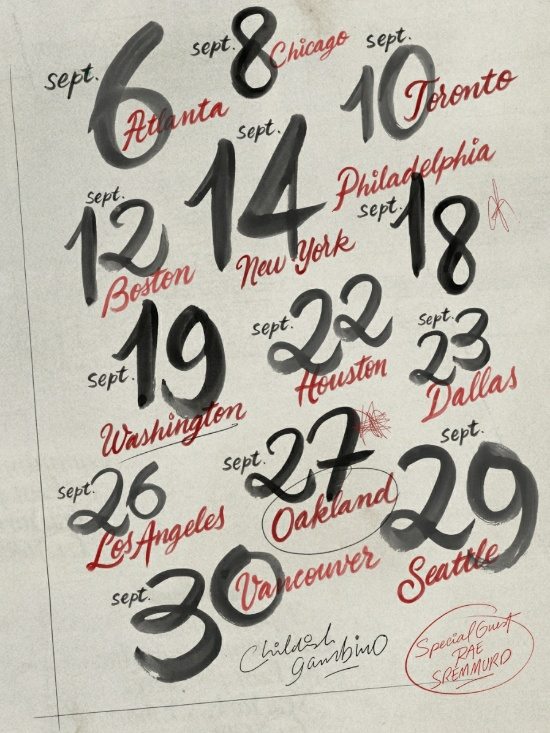 sept. 6
Atlanta
sept. 8
Chicago
sept. 10
Toronto
sept. 12
Boston
sept. 14
New York
Philadelphia
sept. 18
sept. 19
Washington
sept. 22
Houston
sept. 23
Dallas
sept. 26
Los Angeles
sept. 27
Oakland
sept. 29
Seattle
sept. 30
Vancouver
Childish
gambino
Special Guest
RAE
SREMMURD